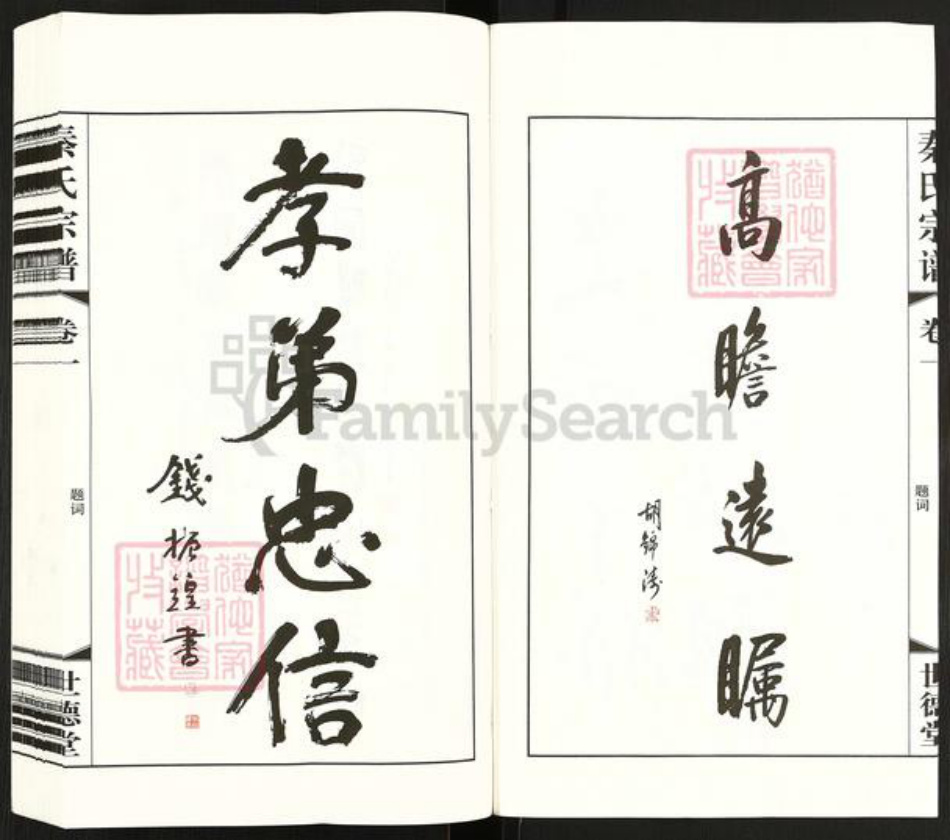 秦氏宗谱
卷一
题词
世德堂
高瞻遠瞩
胡錦濤
孝弟忠信
錢振鍠書
秦氏宗谱
卷一
题词
世德堂
FamilySearch